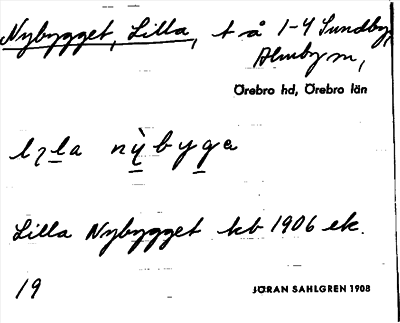 Nybygget, Lilla, t å 1-4 Sundby,
Almby sn,
Örebro hd, Örebro län
lɩla nỳbyga
Lilla Nybygget kb 1906 ek.
19
JÖRAN SAHLGREN 1908